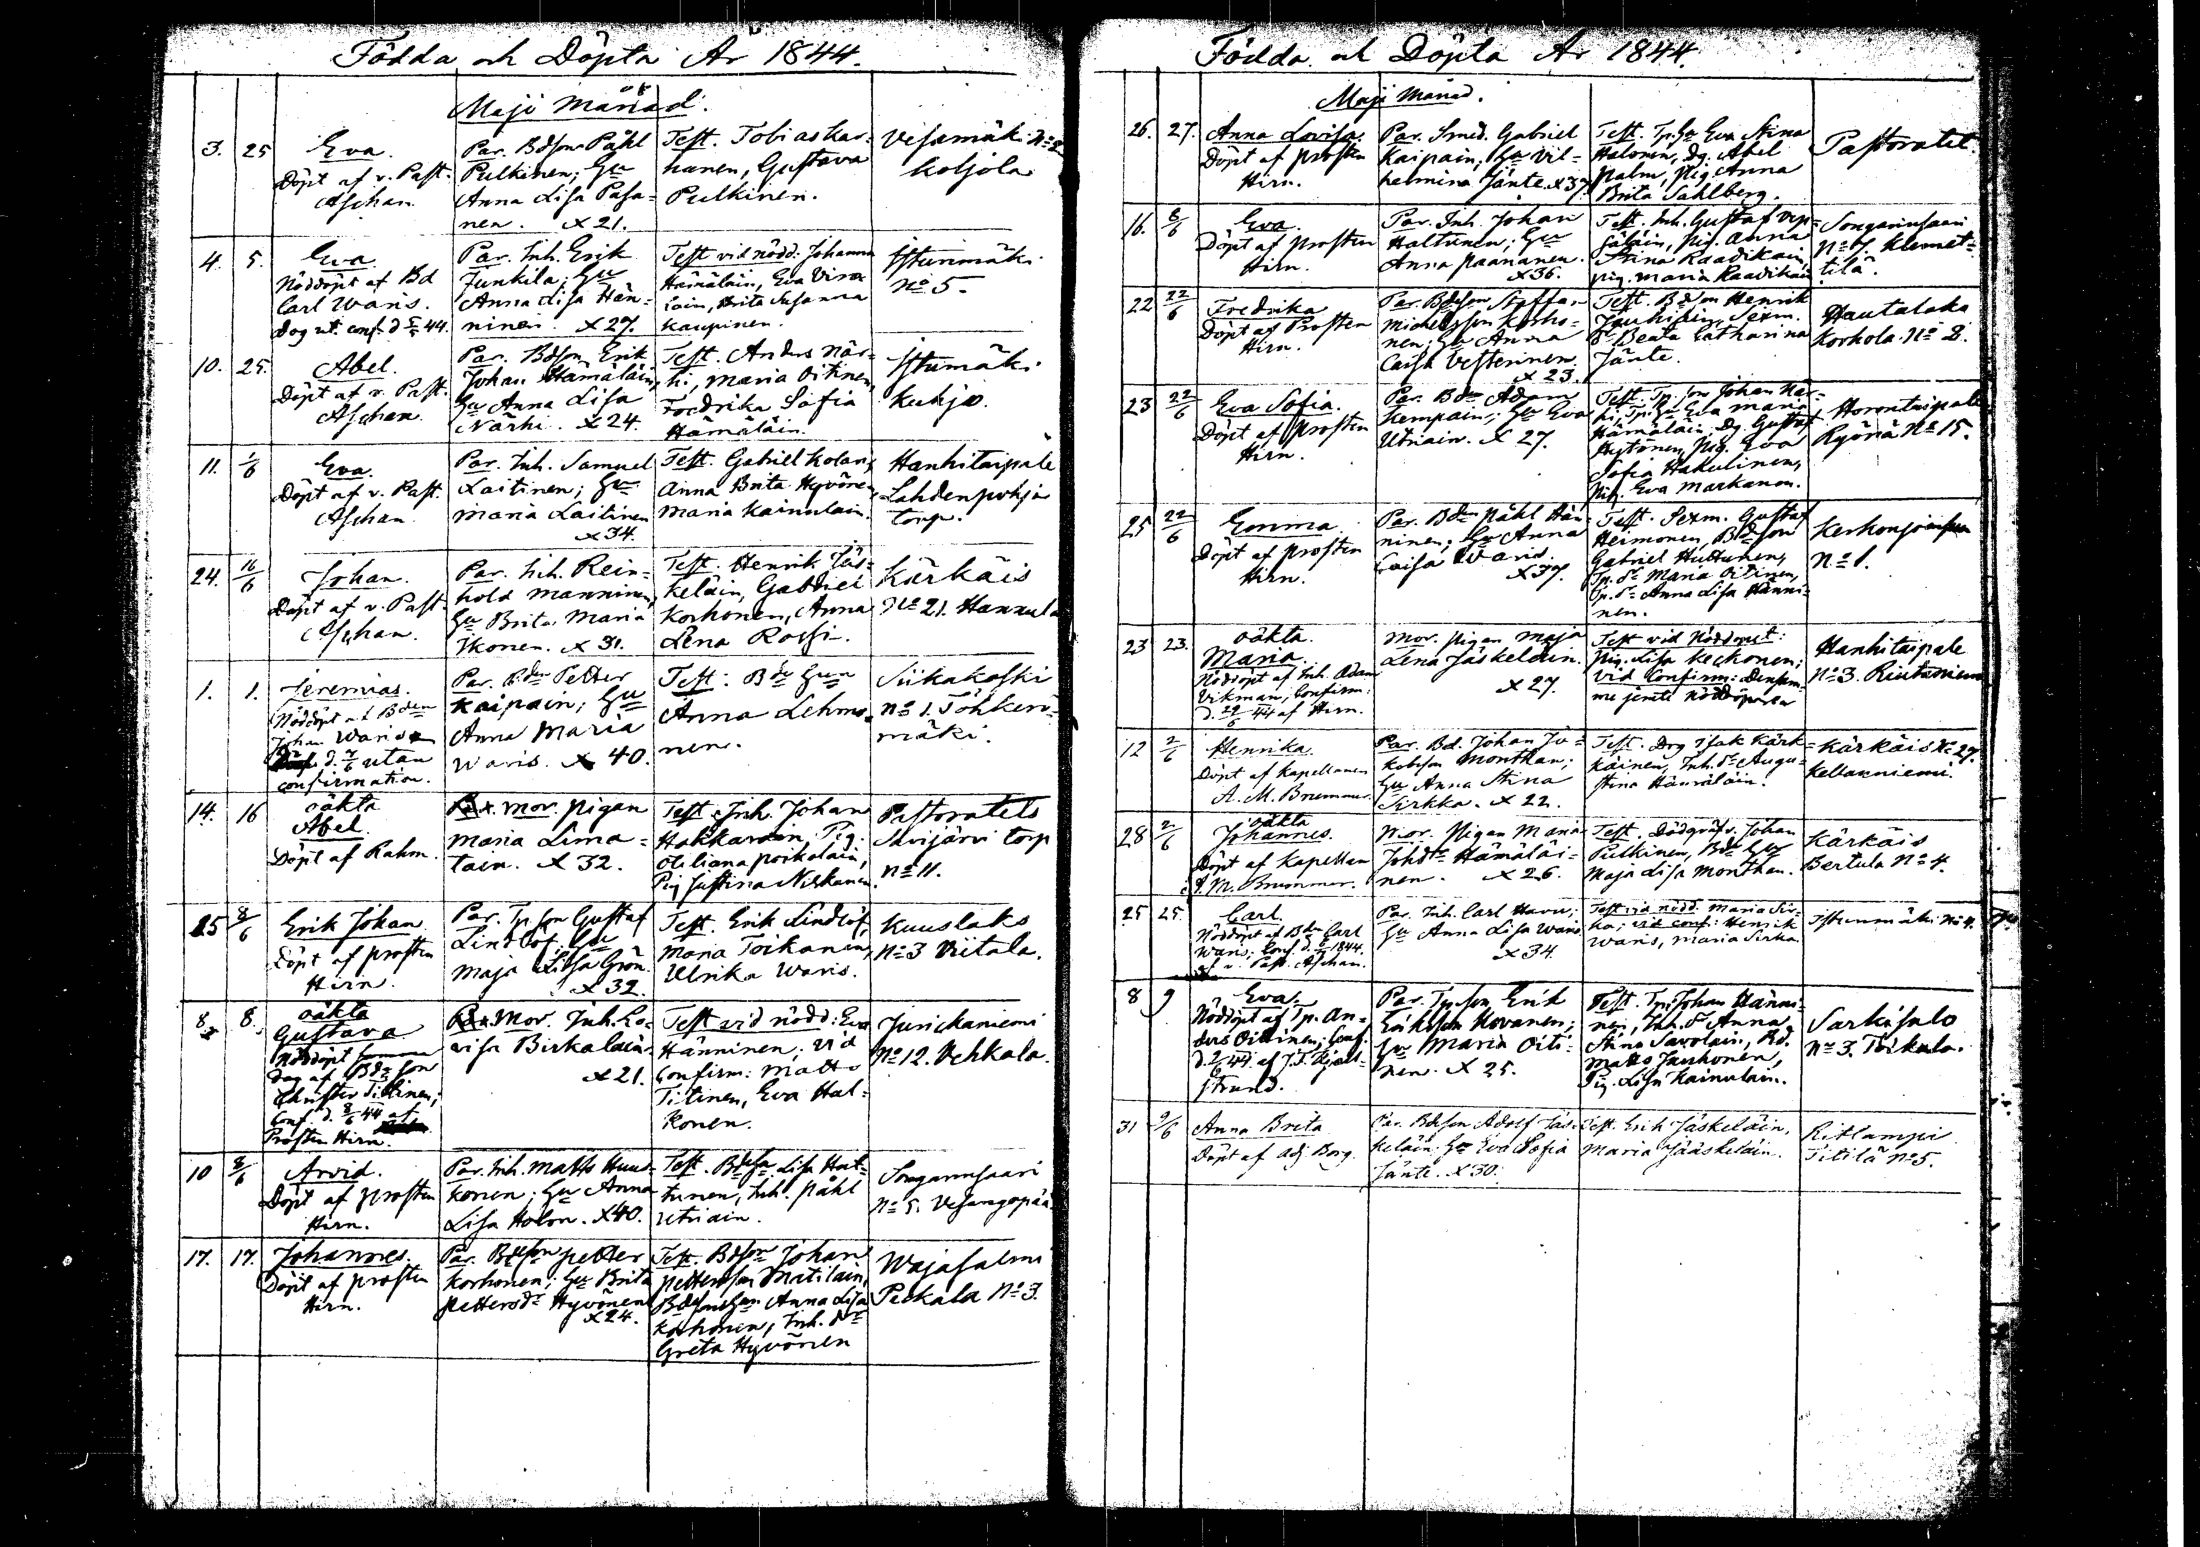 Födda och Döpta År 1844.
Maji Månad.
3. 25 Eva.
Döpt af v. Past.
Aschan.
Par. Bdson Påhl
Pulkinen; Hu
Anna Lisa Pasa-
nen. x 21.
Test. Tobias Kar-
hanen, Gustava
Pulkinen.
Vesamäki No
Koljola
4. 5. Eva
Nöddöpt af Bd
Carl Waris.
Dog ut. conf. d 5/5 44.
Par. Inh. Erik
Junkila; Hu
Anna Lisa Hän-
ninen. x 27.
Test vid nödd: Johanna
Hämäläin, Eva
lain, Brita Susanna
Kaupinen.
Istunmäki
No 5.
10. 25. Abel.
Döpt af v. Past.
Aschan.
Par. Bdson Erik
Johan Hämäläin,
Hu Anna Lisa
Närhi. x 24.
Test. Anders När-
hi, Maria Oitinen,
Fredrika Sofia
Hämäläin.
Istumäki
Kuhjo.
11. 1/6 Eva
Döpt af v. Past.
Aschan
Par. Inh. Samuel
Laitinen; Hu
Maria Laitinen
x 34.
Test. Gabriel Kolari,
Anna Brita Hyvönen,
Maria Kainulain.
Hanhitaipale
Lahdenpohja
torp.
24. 16/6 Johan.
Döpt af v. Past
Aschan.
Par. Inh. Rein-
hold Manninen,
Hu Brita Maria
Ikonen. x 31.
Test. Henrik Jäs-
keläin, Gabriel
Korhonen, Anna
Lena Rossi.
Kärkäis
No 21. Hannula
1. 1. Jeremias.
Nöddöpt af Bden
Johan Waris
d. 7/6 utan
confirmation.
Par. Bden Petter
Kaipain; Hu
Anna Maria
Waris. x 40.
Test: Bde Hun
Anna Lehmo-
nen.
Siikakoski
No 1. Töhkerö-
mäki.
14. 16 oäkta
Abel.
Döpt af Rahm.
Mor. pigan
Maria Lima-
tain. x 32.
Test. Inh. Johan
Hakkarain, Pig.
Otiliana Poikolain,
Pig Justina Niskanen.
Pastoratets
Savijärvi torp
No 11.
25 8/6 Erik Johan
Döpt af prosten
Hirn.
Par. Tp. son Gustaf
Lindlöf, Hu
Maja Lisa Grön.
x 32.
Test. Erik Lindlöf,
Maria Toikanen,
Ulrika Waris.
Kuuslaks
No 3 Viitala.
8. 8. oäkta
Gustava
Nöddöpt samma
dag af Bde son
Christer Titinen;
Conf. d. 8/6 44 af
Prosten Hirn.
Mor. Inh. Lo-
visa Birkalain
x 21.
Test vid nödd: Eva
Hänninen; vid
Confirm: Matts
Titinen, Eva Hal-
konen.
Jurickaniemi
No 12. Vehkala.
10 8/6 Arvid.
Döpt af prosten
Hirn.
Par. Inh. Matts Huus-
konen; Hu Anna
Lisa Holon. x 40.
Test. Lisa Hut-
tunen, Inh. Påhl
Utriain.
Songarinsaari
No 5. Vesangapää
17. 17. Johannes.
Döpt af prosten
Hirn.
Par. Bdeson Petter
Korhonen; Hu Brita
Pettersdr Hyvönen
x 24.
Test. Bdson Johan
Pettersson Matilain,
Bdesons Hun Anna Lisa
Korhonen, Inh. dr
Greta Hyvönen
Wajasalmi
Pekkala No 3.
Födda och Döpta År 1844.
Maji Månad.
26. 27. Anna Lovisa.
Döpt af prosten
Hirn.
Par. Smed. Gabriel
Kaipain; Hu Vil-
helmina Jänte. x 37.
Test. Tp. Hu Eva Stina
Halonen, Dg. Abel
Palm, Pig. Anna
Brita Sahlberg.
Pastoratet.
16. 8/6 Eva
Döpt af prosten
Hirn.
Par. Inh. Johan
Haltunen; Hu
Anna Paananen.
x 36.
Test. Inh. Gustaf Vep-
säläin, Pig. Anna
Stina Raadikain,
Pig. Maria Raadikain
Songarinsaari
No 7. Klemet-
tilä.
22 22/6 Fredrika
Döpt af Prosten
Hirn.
Par. Bdeson Staffan
Michelsson Korho-
nen; Hu Anna
Caisa Vesterinen.
x 23.
Test. Bdson Henrik
Jauhiain, Sexm.
dr Beata Catharina
Jänte.
Hautalaks
Korhola No 2.
23 22/6 Eva Sofia.
Döpt af Prosten
Hirn.
Par. Bde Adam
Kempain; Hu Eva
Utriain. x 27.
Test. Tp. son Johan När-
hi, Tp. Hu Eva Maria
Hämäläin, Dg. Gustaf
Hytönen, Pig. Eva
Sofia Hakulinen,
Pig. Eva Markanen.
Horontaipale
Ryönä No 15.
25 22/6 Emma
Döpt af prosten
Hirn.
Par. Bden Påhl Hän-
ninen; Hu Anna
Caisa Waris.
x 37.
Test. Sexm. Gustaf
Heimonen, Bdeson
Gabriel Huttunen,
Tp. dr Maria Oitinen,
Tp. dr Anna Lisa Hänni-
nen.
Kerkonjoensuu
No 1.
23 23. oäkta.
Maria
Nöddöpt af Inh. Adam
Vikman; Confirm:
d. 29/6 44 af Hirn.
Mor. Pigan Maja
Lena Jäskeläin.
x 27.
Test vid Nöddopet:
Pig. Lisa Keckonen;
vid Confirm: Densam-
me jemte nöddöparen
Hanhitaipale
No 3. Rintaniemi
12 2/6 Henrika
Döpt af kapellanen
A. M. Brummer.
Par. Bd. Johan Ja-
kobsson Monthan;
Hu Anna Stina
Sirkka. x 22.
Test. Drg Isak Kärk-
käinen, Inh. dr Augu-
stina Hämäläin.
Kärkäis No 27.
Kellanniemi.
28 2/6 oäkta
Johannes.
Döpt af kapellan
A. M. Brummer.
Mor. Pigan Maria
Johdr Hämäläi-
nen. x 26.
Test. Dödgräfv. Johan
Pulkinen, Bde Hu
Maja Lisa Monthan.
Kärkäis
Bertula No 4.
25 25. Carl.
Nöddöpt af Bden Carl
Waris; Conf. d. 1844.
af v. Past. Aschan.
Par. Inh. Carl Havu;
Hu Anna Lisa Waris
x 34
Test vid nödd. Maria Sir-
ka; vid conf: Henrik
Waris, Maria Sirka.
Istunmäki No 4.
8 9 Eva.
Nöddöpt af Tp. An-
ders Oittinen; Conf.
d. 2/6 44. af J. F. Kjäll-
strand.
Par. Tp.son Erik
Eriksson Kovanen;
Hu Maria Oiti-
nen. x 25.
Test. Tp. Johan Hänni-
nen, Inh. dr Anna
Stina Savolain, Rd.
Matts Jauhonen,
Pig. Lisa Kainulain.
Sarkisalo
No 3. Toikkala.
31 9/6 Anna Brita
Döpt af adj Borg.
Par. Bdeson Adolf Jäs-
keläin; Hu Eva Sofia
Jänte. x 30.
Test. Erik Jäskeläin,
Maria Jääskeläin.
Ritlampi
Titilä No 5.